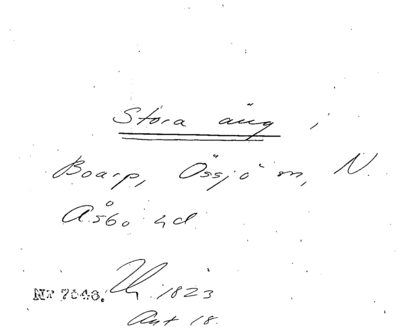 Stora äng i
Boarp, Össjö sn, N.
Åsbo hd
Nr 7646. 1823
Ant 18.